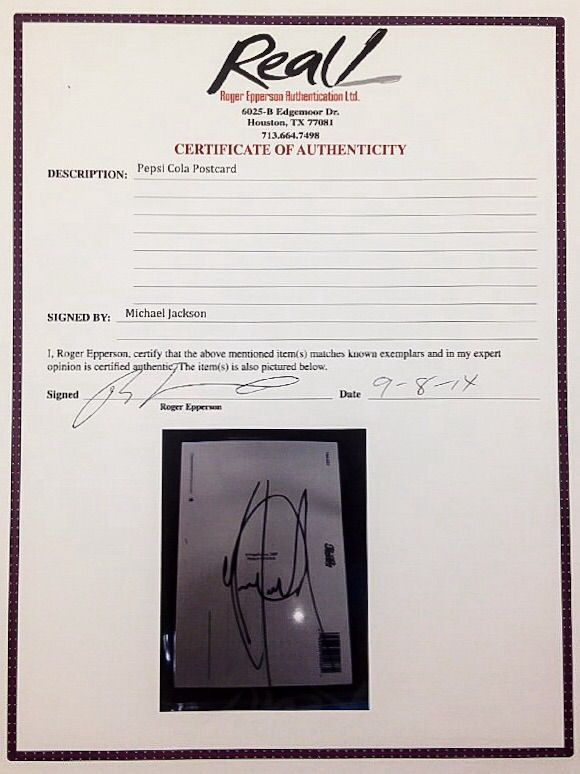 Real
Roger Epperson Authentication Ltd.
6025-B Edgemoor Dr.
Houston, TX 77081
713.664.7498
CERTIFICATE OF AUTHENTICITY
DESCRIPTION: Pepsi Cola Postcard
SIGNED BY: Michael Jackson
I, Roger Epperson, certify that the above mentioned item(s) matches known exemplars and in my expert
opinion is certified authentic. The item(s) is also pictured below.
Signed Date 9-8-14
Roger Epperson